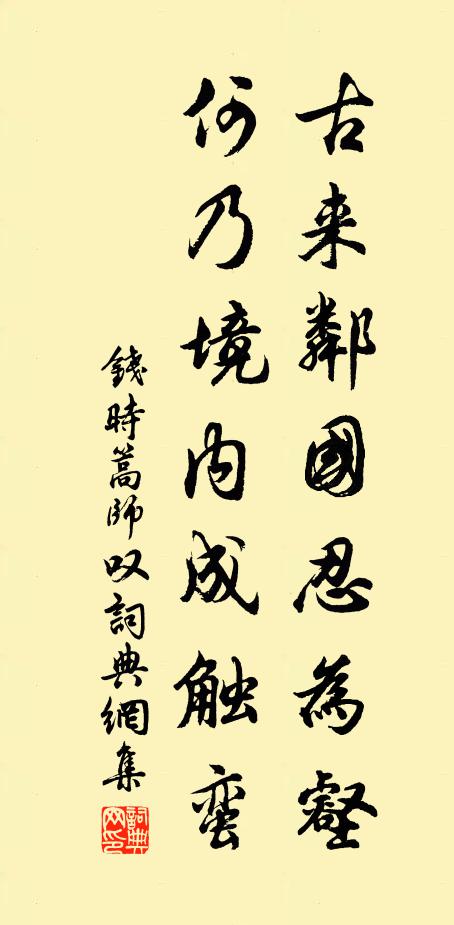 古来鄰國忍為壑
何乃境内成触蛮
錢時篙師叹詞典網集
詞典网印